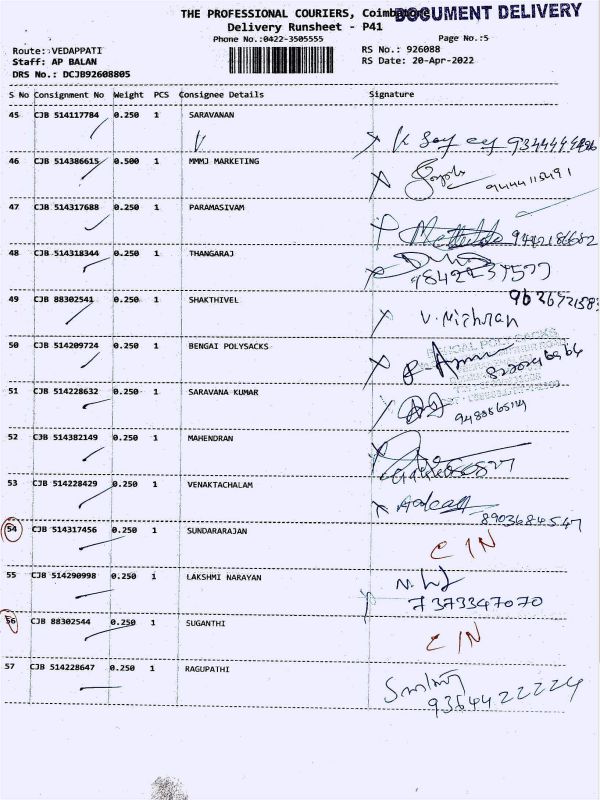 THE PROFESSIONAL COURIERS, Coimbatore
DOCUMENT DELIVERY
Delivery Runsheet - P41
Phone No.:0422-3505555
Page No.:5
Route: VEDAPPATI
RS No.: 926088
Staff: AP BALAN
RS Date: 20-Apr-2022
DRS No.: DCJB92608805
S No Consignment No Weight PCS Consignee Details Signature
45 CJB 514117784 0.250 1 SARAVANAN
46 CJB 514386615 0.500 1 MMMJ MARKETING
9444115491
47 CJB 514317688 0.250 1 PARAMASIVAM
9442186682
48 CJB 514318344 0.250 1 THANGARAJ
49 CJB 88302541 0.250 1 SHAKTHIVEL
V. Mithran
50 CJB 514209724 0.250 1 BENGAI POLYSACKS
51 CJB 514228632 0.250 1 SARAVANA KUMAR
52 CJB 514382149 0.250 1 MAHENDRAN
53 CJB 514228429 0.250 1 VENAKTACHALAM
8903684547
54 CJB 514317456 0.250 1 SUNDARARAJAN
C IN
55 CJB 514290998 0.250 1 LAKSHMI NARAYAN
7373347070
56 CJB 88302544 0.250 1 SUGANTHI
C IN
57 CJB 514228647 0.250 1 RAGUPATHI
9364422224